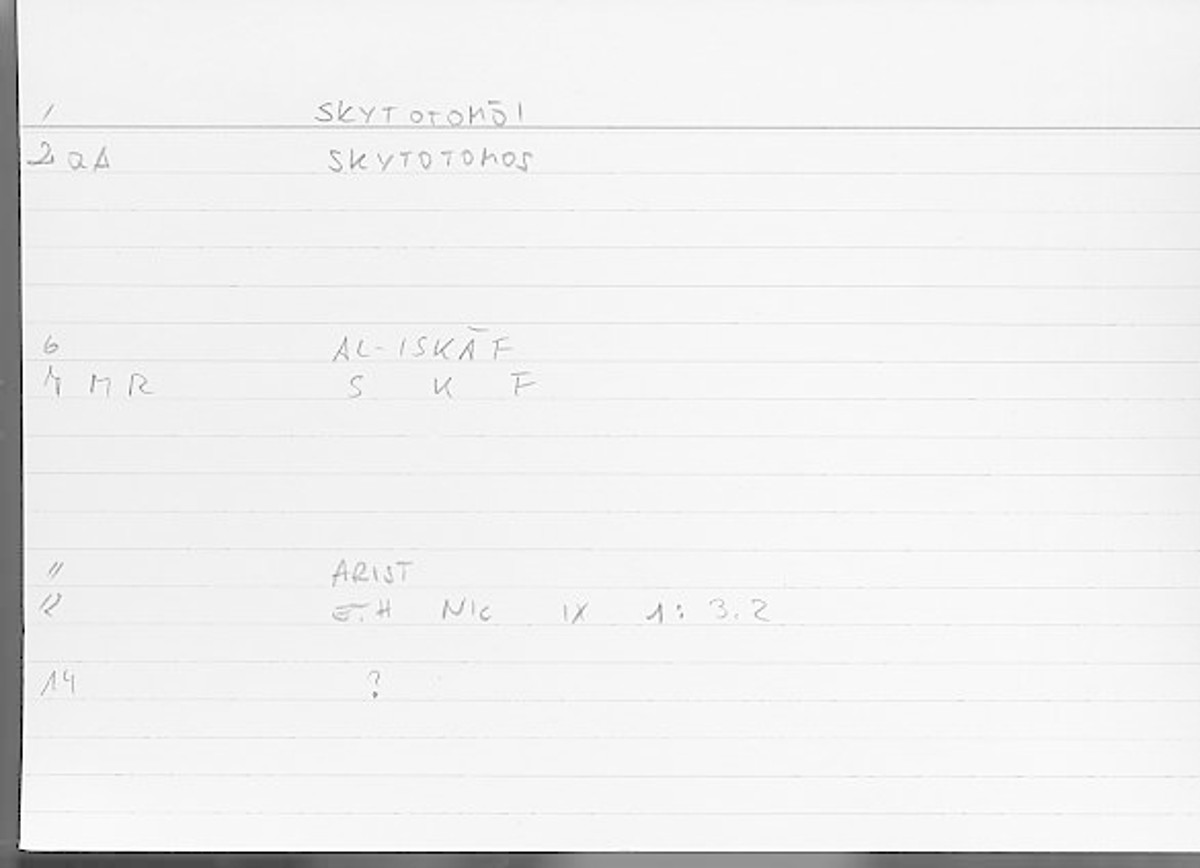 1 SKYTOTOMŌI
2 aA SKYTOTOMOS
6 AL-ISKĀF
MR S K F
11 ARIST
12 E.H NIC IX 1: 3.2
14 ?